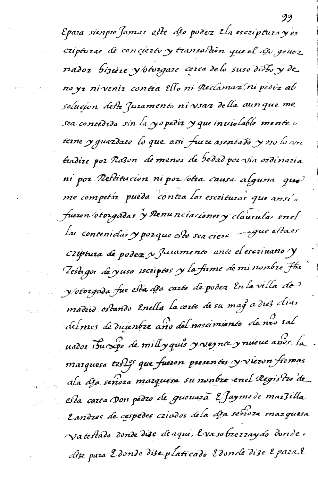 99
E para sienpre Jamas este dho poder E la escriptura y es
cripturas de concierto y transacion que el dho gover
nador hiziere y otorgare cerca de lo suso dicho y de
no yr ni venir contra Ello ni Reclamar ni pedir ab
solucion deste Juramento ni usar della aunque me
sea concedida sin la yo pedir y que inviolable mente
terne y guardare lo que ansi fuere asentado y no lo con
tradire por Razon de menos de hedad por via ordinaria
ni por Restitucion ni por otra causa alguna que
me competir pueda contra las escrituras que ansi
fueren otorgadas y Renunciaciones y clausulas en el
las contenidas y porque esto sea cierto que esta es
criptura de poder y Juramento ante el escrivano y
testigos de yuso escriptos y la firme de mi nonbre
y otorgada fue esta dha carta de poder En la villa de
madrid estando En ella la corte de su mag a diez dias
del mes de dizienbre año del nascimiento de nro sal
vador de mill y quis y veynte y nueve años la
marquesa testigos que fueron presentes y vieron firmar
a la dha señora marquesa su nonbre en el Registro de
esta carta Don pedro de guevara E Jayme de marzilla
E andres de cespedes criados de la dha señora marquesa
va testado donde dize de aqui E va sobrerraydo donde
dize para E donde dize platicado E donde dize E para E